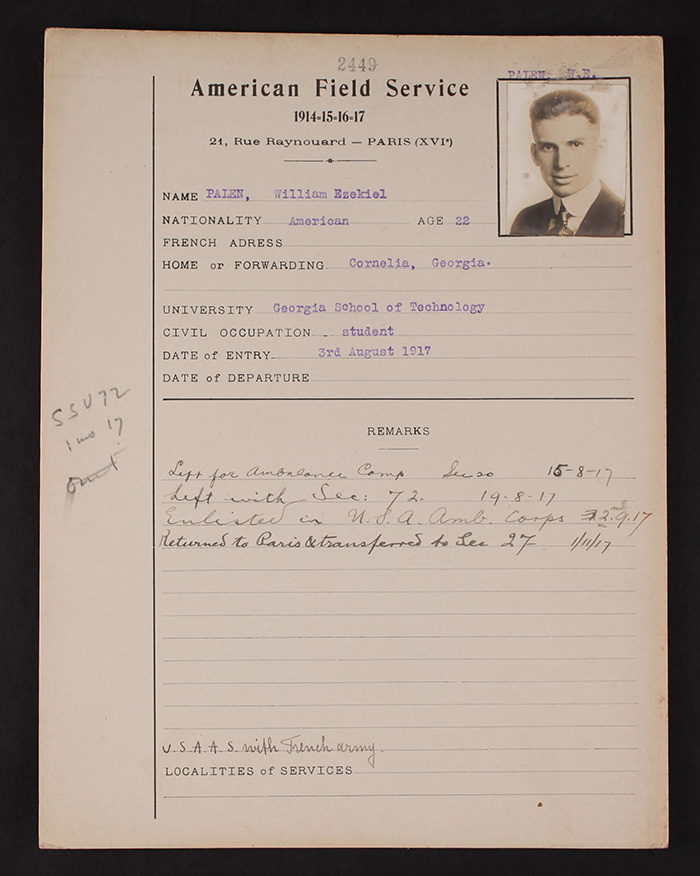 2449
PALEN, W.E.
American Field Service
1914-15-16-17
21, Rue Raynouard — PARIS (XVIe)
NAME PALEN, William Ezekiel
NATIONALITY American AGE 22
FRENCH ADRESS
HOME or FORWARDING Cornelia, Georgia.
UNIVERSITY Georgia School of Technology
CIVIL OCCUPATION - student
DATE of ENTRY 3rd August 1917
DATE of DEPARTURE
SSU 72
1 mo 17
REMARKS
Left for Ambulance Camp Sec 20 15-8-17
Left with Sec: 72. 19-8-17
Enlisted in U.S.A. Amb. Corps 2.9.17
Returned to Paris & transferred to Sec 27 1/11/17
U.S.A.A.S. with French army.
LOCALITIES of SERVICES